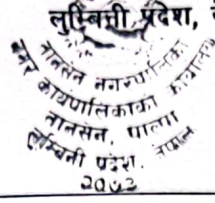 लुम्बिनी प्रदेश,
तानसेन नगरपालिका
नगर कार्यपालिकाको कार्यालय
तानसेन, पाल्पा
लुम्बिनी प्रदेश, नेपाल
२०७३